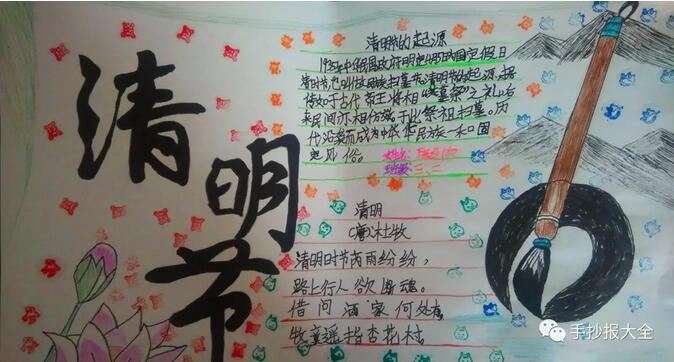 清明节
清明节的起源
1935年中华民国政府明把4月5日为国定假日
清明节,也叫做民族扫墓节。清明节的起源,据
传始于古代帝王将相“墓祭”之礼,后
来民间亦相仿效,于此祭祖扫墓。历
代沿袭而成为中华民族一和固
定风俗。
姓名:
班级:三、二
清明
(唐)杜牧
清明时节雨纷纷,
路上行人欲断魂。
借问酒家何处有
牧童遥指杏花村。
手抄报大全